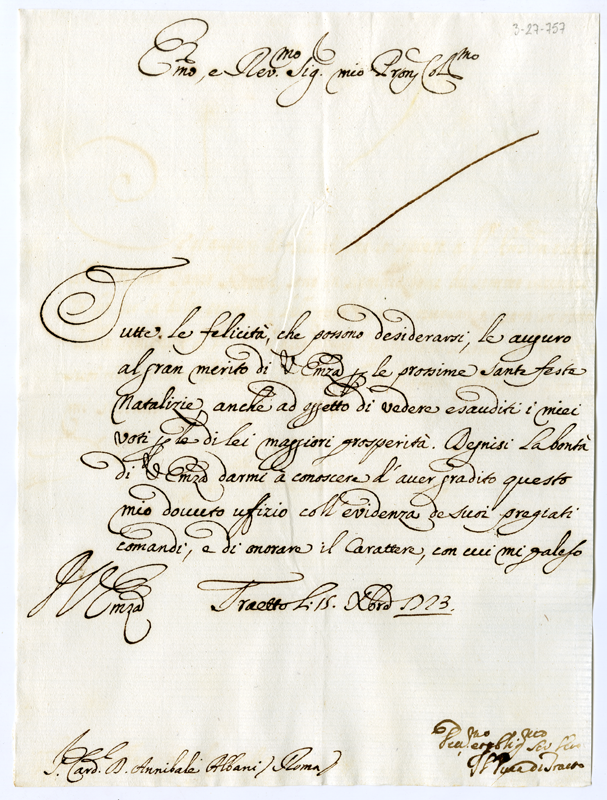 3-27-757
Emo, e Rev.mo Sig. mio Pron Colmo
Tutte le felicità, che possono desiderarsi, le auguro
al gran merito di V Emza p le prossime Sante feste
Natalizie, anche ad oggetto di vedere esauditi i miei
voti p le di lei maggiori prosperità. Degnisi la bontà
di V Emza darmi à conoscere d'aver gradito questo
mio dovuto ufizio coll'evidenza de suoi pregiati
comandi, e di onorare il Carattere, con cui mi paleso
V Emza Traetto li 15. Xbre 1723.
Il Duca di Traetto
S. Card. D. Annibale Albani / Roma /